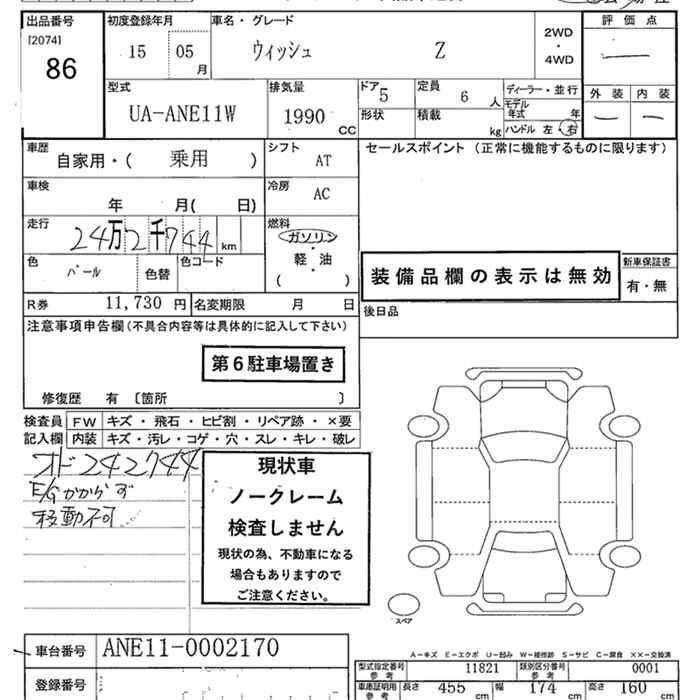 出品番号 初度登録年月 車名・グレード 評価点
[2074]
86 15 05月 ウィッシュ Z 2WD・4WD
型式 排気量 ドア 5 定員 6人 ディーラー・並行 外装 内装
UA-ANE11W 1990 CC 形状 積載 kg モデル年式 年
ハンドル 左・右
車歴 シフト セールスポイント (正常に機能するものに限ります)
自家用・( 乗用 ) AT
車検 冷房
年 月( 日) AC
走行 燃料
24万2千744 km ガソリン
・
軽・油
( )
色 パール 色替 色コード
装備品欄の表示は無効
新車保証書
有・無
R券 11,730 円 名変期限 月 日
後日品
注意事項申告欄 (不具合内容等は具体的に記入して下さい)
第6駐車場置き
修復歴 有 〔箇所 〕
検査員 FW キズ・飛石・ヒビ割・リペア跡・×要
記入欄 内装 キズ・汚レ・コゲ・穴・スレ・キレ・破レ
オド242744
E/Gかからず
移動不可
現状車
ノークレーム
検査しません
現状の為、不動車になる
場合もありますので
ご注意ください。
スペア
A-キズ E-エクボ U-凹み W-補修跡 S-サビ C-腐食 ××-交換済
車台番号 ANE11-0002170
型式指定番号 参考 11821 類別区分番号 参考 0001
登録番号
車庫証明用 参考 長さ 455 cm 幅 174 cm 高さ 160 cm